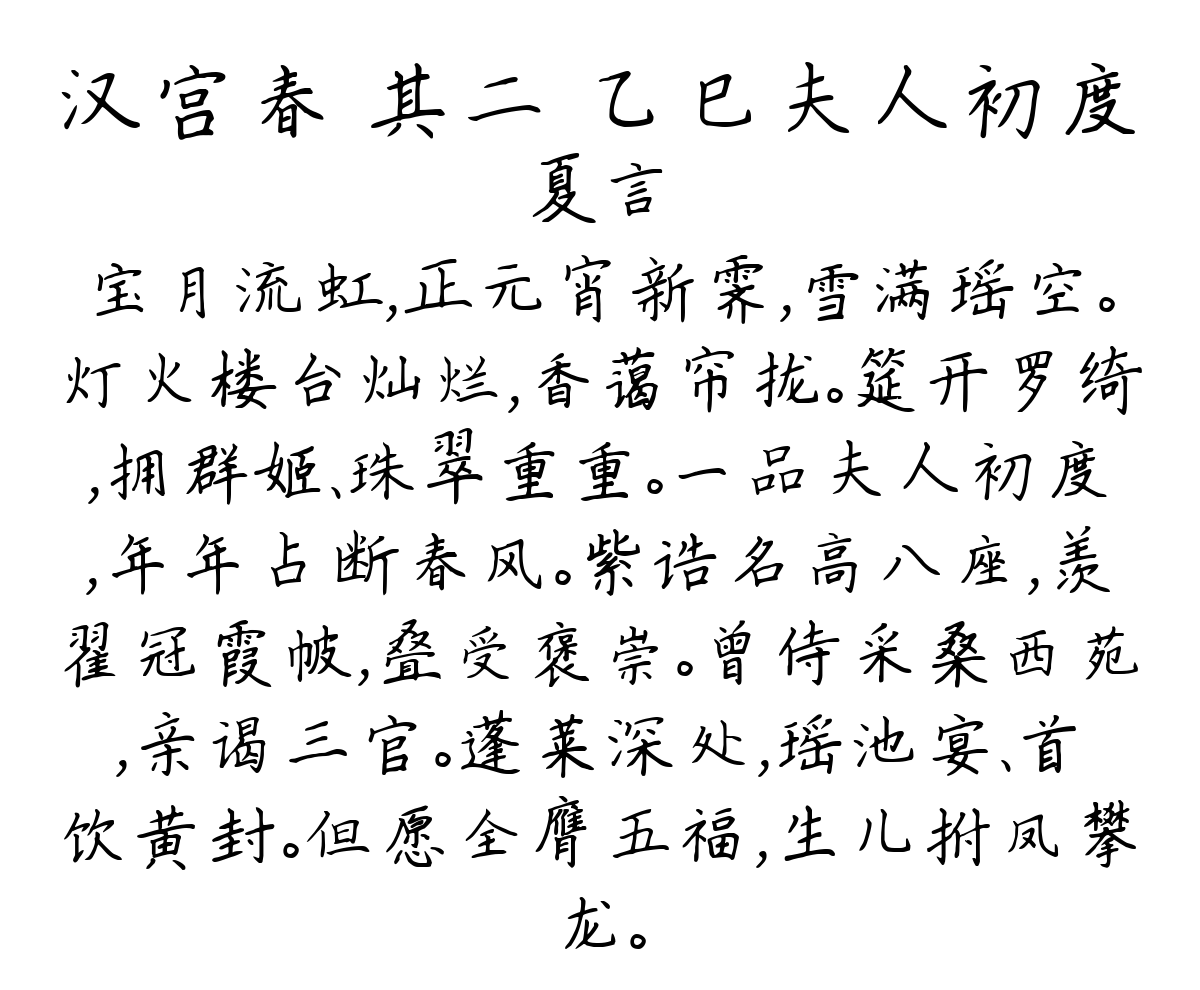 汉宫春 其二 乙巳夫人初度
夏言
宝月流虹,正元宵新霁,雪满瑶空。
灯火楼台灿烂,香蔼帘拢。筵开罗绮
,拥群姬、珠翠重重。一品夫人初度
,年年占断春风。紫诰名高八座,羡
翟冠霞帔,叠受褒崇。曾侍采桑西苑
,亲谒三官。蓬莱深处,瑶池宴、首
饮黄封。但愿全膺五福,生儿拊凤攀
龙。